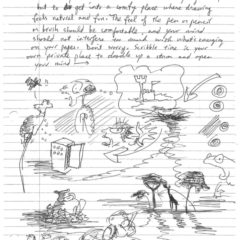 but to get into a comfy place where drawing
feels natural and fun. The feel of the pen or pencil
or brush should be comfortable, and your mind
should not interfere too much with what's emerging
on your paper. Don't worry. Scribble time is your
own private place to dream up a storm and open
your mind